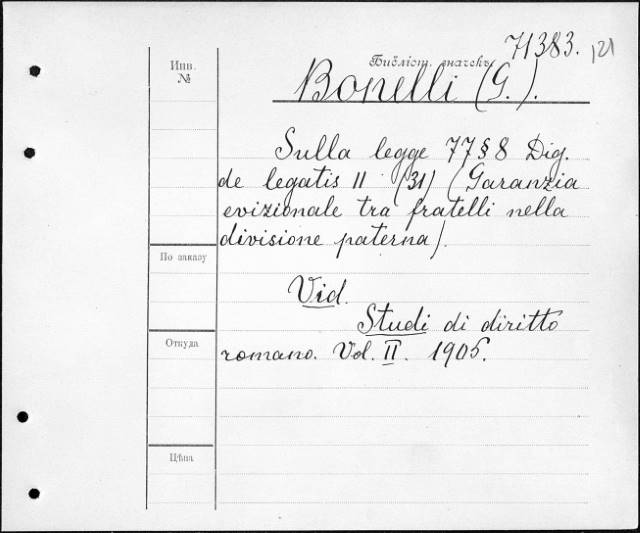 71383. 121
Инв.
№
Библіот. значекъ
Bonelli (G.).
Sulla legge 77 § 8 Dig.
de legatis II (31) (Garanzia
evizionale tra fratelli nella
divisione paterna).
По заказу
Vid.
Studi di diritto
Откуда
romano. Vol. II. 1905.
Цѣна